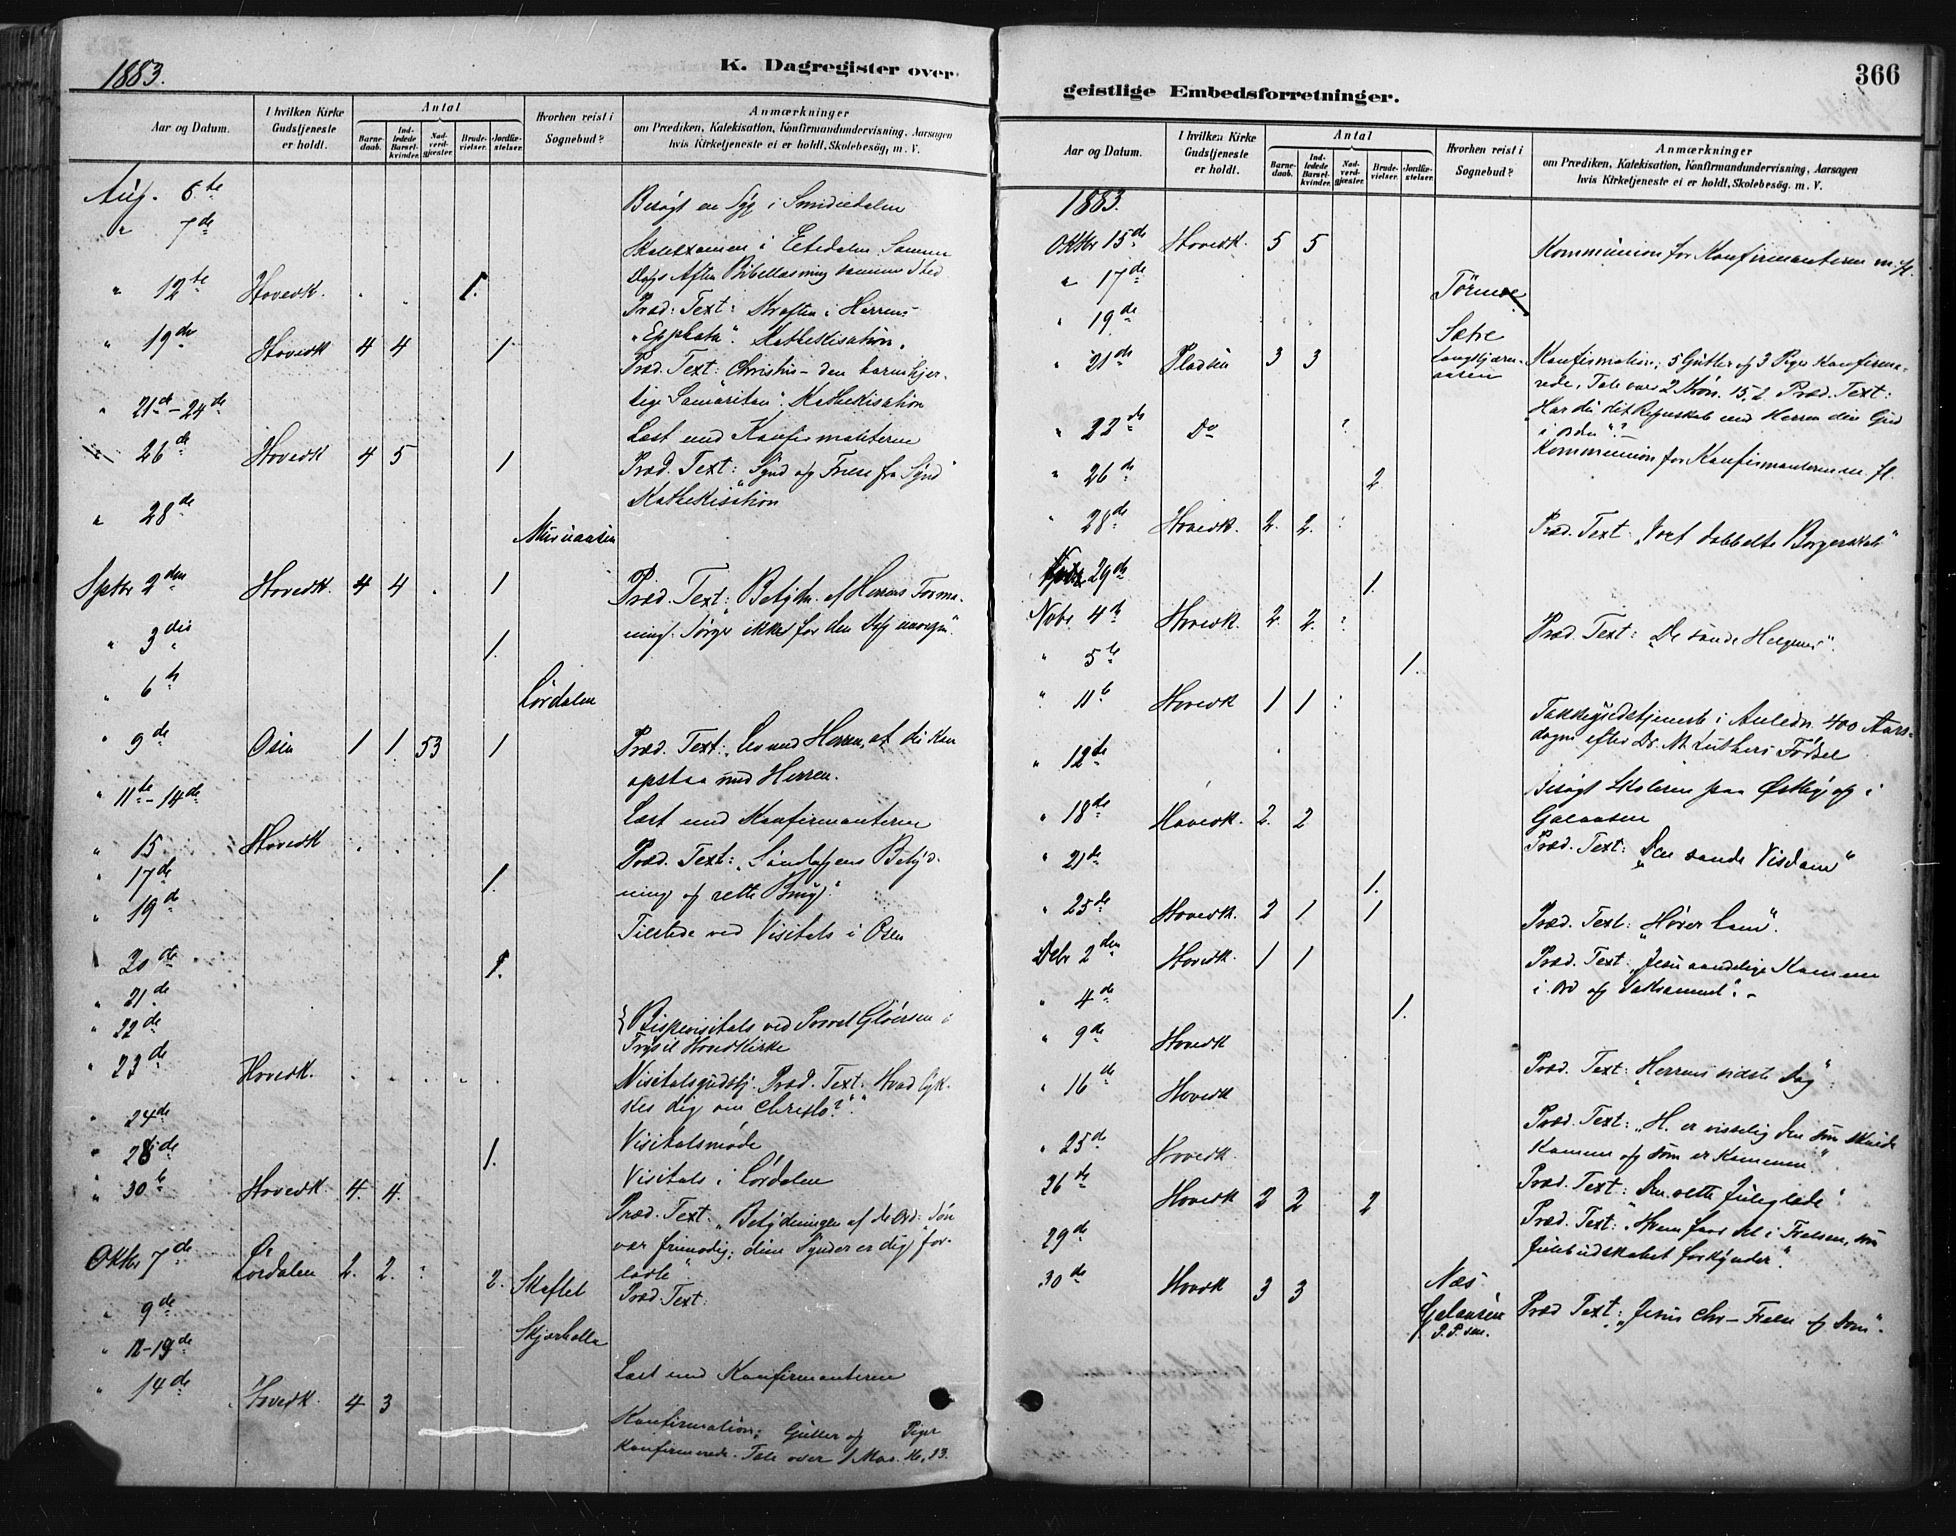 1883.
K. Dagregister over
Aar og Datum.
I hvilken Kirke Gudstjeneste er holdt.
Antal
Barnedaab.
Indledede Barselkvinder.
Nadverdgjester.
Brudevielser.
Jordfæstelser.
Hvorhen reist i Sognebud?
Anmærkninger
om Prædiken, Katekisation, Konfirmandundervisning, Aarsagen
hvis Kirketjeneste ei er holdt, Skolebesög, m. V.
Aug. 6te Besøgt en Syg i
" 7de Skoleexamen i Eltdalen. Samme
Dags Aften Bibellæsning samme Sted
" 12te Hovedk. 1.
Præd. Text: Kraften i Herrens
"Epphata". Kathekisation.
" 19de Hovedk 4 4 1
Præd. Text: Christus - den barmhjer-
tige Samaritan". Kathekisation
" 21de - 24de Læst med Konfirmanterne
" 26de Hovedk 4 5 1 Præd. Text: "Synd og Friere fra Synd"
Kathekisation
" 28de
Septbr 2den Hovedk. 4 4 1 Præd. Text: "Betydn. af Herrens Forma-
ning: Sørger ikke for den Dag imorgen".
" 3die 1.
" 6te Lørdalen
" 9de Osen 1 1. 53 1 Præd. Text: "Lev med Herren, at du kan
opstaa med Herren.
" 11te - 14de Læst med Konfirmanterne
" 15 Hovedk Præd. Text: "Søndagens Betyd-
" 17de 1. ning og rette Brug".
" 19de Tilstede ved Visitats i Osen
" 20de 1.
" 21de
" 22de Bispevisitats ved Provst Gløersen i
Trysil Hovedkirke
" 23de Hovedk. Visitatsgudstj. Præd. Text: Hvad tyk-
kes dig om Christo?"
" 24de Visitatsmøde
" 28de 1. Visitats i Lørdalen
" 30te Hovedk 4 4 Præd. Text: "Betydningen af de Ord: Søn
vær frimodig; dine Synder er dig for-
ladte".
Oktbr 7de Lørdalen 2. 2. 2. Skaflet Præd. Text:
" 9de
" 12-13de Læst med Konfirmanterne
" 14de Hovedk. 4 3
Konfirmation: Gutter og Piger
konfirmerede. Tale over 1 Mos. 16, 13.
geistlige Embedsforretninger.
366
Aar og Datum.
I hvilken Kirke Gudstjeneste er holdt.
Antal
Barnedaab.
Indledede Barselkvinder.
Nadverdgjester.
Brudevielser.
Jordfæstelser.
Hvorhen reist i Sognebud?
Anmærkninger
om Prædiken, Katekisation, Konfirmandundervisning, Aarsagen
hvis Kirketjeneste ei er holdt, Skolebesög, m. V.
1883.
Oktbr 15de Hovedk. 5 5 Kommunion for Konfirmanterne m. fl.
" 17de Törmoe
" 19de Sætre
" 21de Pladsen 3 3 Konfirmation; 5 Gutter og 3 Piger konfirme-
rede, Tale over 2 Krøn. 15, 2. Præd. Text:
Har du dit Regnskab med Herren din Gud
i Orden"?
" 22de Do Kommunion for Konfirmanterne m. fl.
" 26de 2
" 28de Hovedk. 2. 2. Præd. Text: "Vort dobbelte Borgerskab"
29de 1.
Novbr 4de Hovedk. 2. 2. Præd. Text: "De sande Helgener".
" 5te 1.
" 11te Hovedk 1 1 Takkegudstjeneste i Anledn. 400 Aars-
dagen efter Dr. M. Luthers Fødsel
" 12te Besøgt Skolerne paa Østby og i
Galaasen
" 18de Hovedk. 2. 2 Præd. Text: "Den sande Visdom"
" 21de 1.
" 25de Hovedk. 2 1 1 Præd. Text:
Debr 2den Hovedk. 1 1 Præd. Text: "Jesu aandelige Komme
i Ord og Sakrament". -
" 4de 1.
" 9de Hovedk Præd. Text: "Herrens sidste Dag".
" 16de Hovedk Præd. Text: "H. er visselig den som skulde
komme og som er kommen".
" 25de Hovedk. Præd. Text: "Den rette Juleglæde"
26de Hovedk 2 2 2 Præd. Text:
Julebudskabet forkynder".
29de Næs
30de Hovedk 3 3 Galaasen
P. P. sen.
Præd. Text: "Jesus Chr -